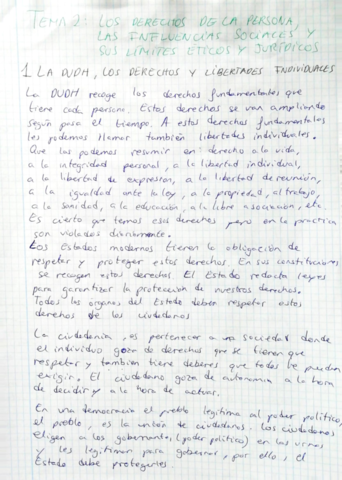 TEMA 2: LOS DERECHOS DE LA PERSONA,
LAS INFLUENCIAS SOCIALES Y
SUS LÍMITES ÉTICOS Y JURÍDICOS
1. LA DUDH, LOS DERECHOS Y LIBERTADES INDIVIDUALES
La DUDH recoge los derechos fundamentales que
tiene cada persona. Estos derechos se van ampliando
según pasa el tiempo. A estos derechos fundamentales
les podemos llamar también libertades individuales.
Que las podemos resumir en: derecho a la vida,
a la integridad personal, a la libertad individual,
a la libertad de expresión, a la libertad de reunión,
a la igualdad ante la ley, a la propiedad, al trabajo,
a la sanidad, a la educación, a la libre asociación, etc.
Es cierto que temos esos derechos pero en la practica
son violados diariamente.
Los Estados modernos tienen la obligación de
respetar y proteger estos derechos. En sus constituciones
se recogen estos derechos. El Estado redacta leyes
para garantizar la protección de nuestros derechos.
Todos los órganos del Estado deben respetar estos
derechos de los ciudadanos
La ciudadanía, es pertenecer a una sociedad donde
el individuo goza de derechos que se tienen que
respetar y tambien tiene deberes que todos le pueden
exigir. El ciudadano goza de autonomía a la hora
de decidir y a la hora de actuar.
En una democracia el pueblo legitima al poder político,
el pueblo, es la unión de ciudadanos. Los ciudadanos
eligen a los gobernantes (poder político) en las urnas
y les legitiman para gobernar, por ello, el
Estado debe protegerles.